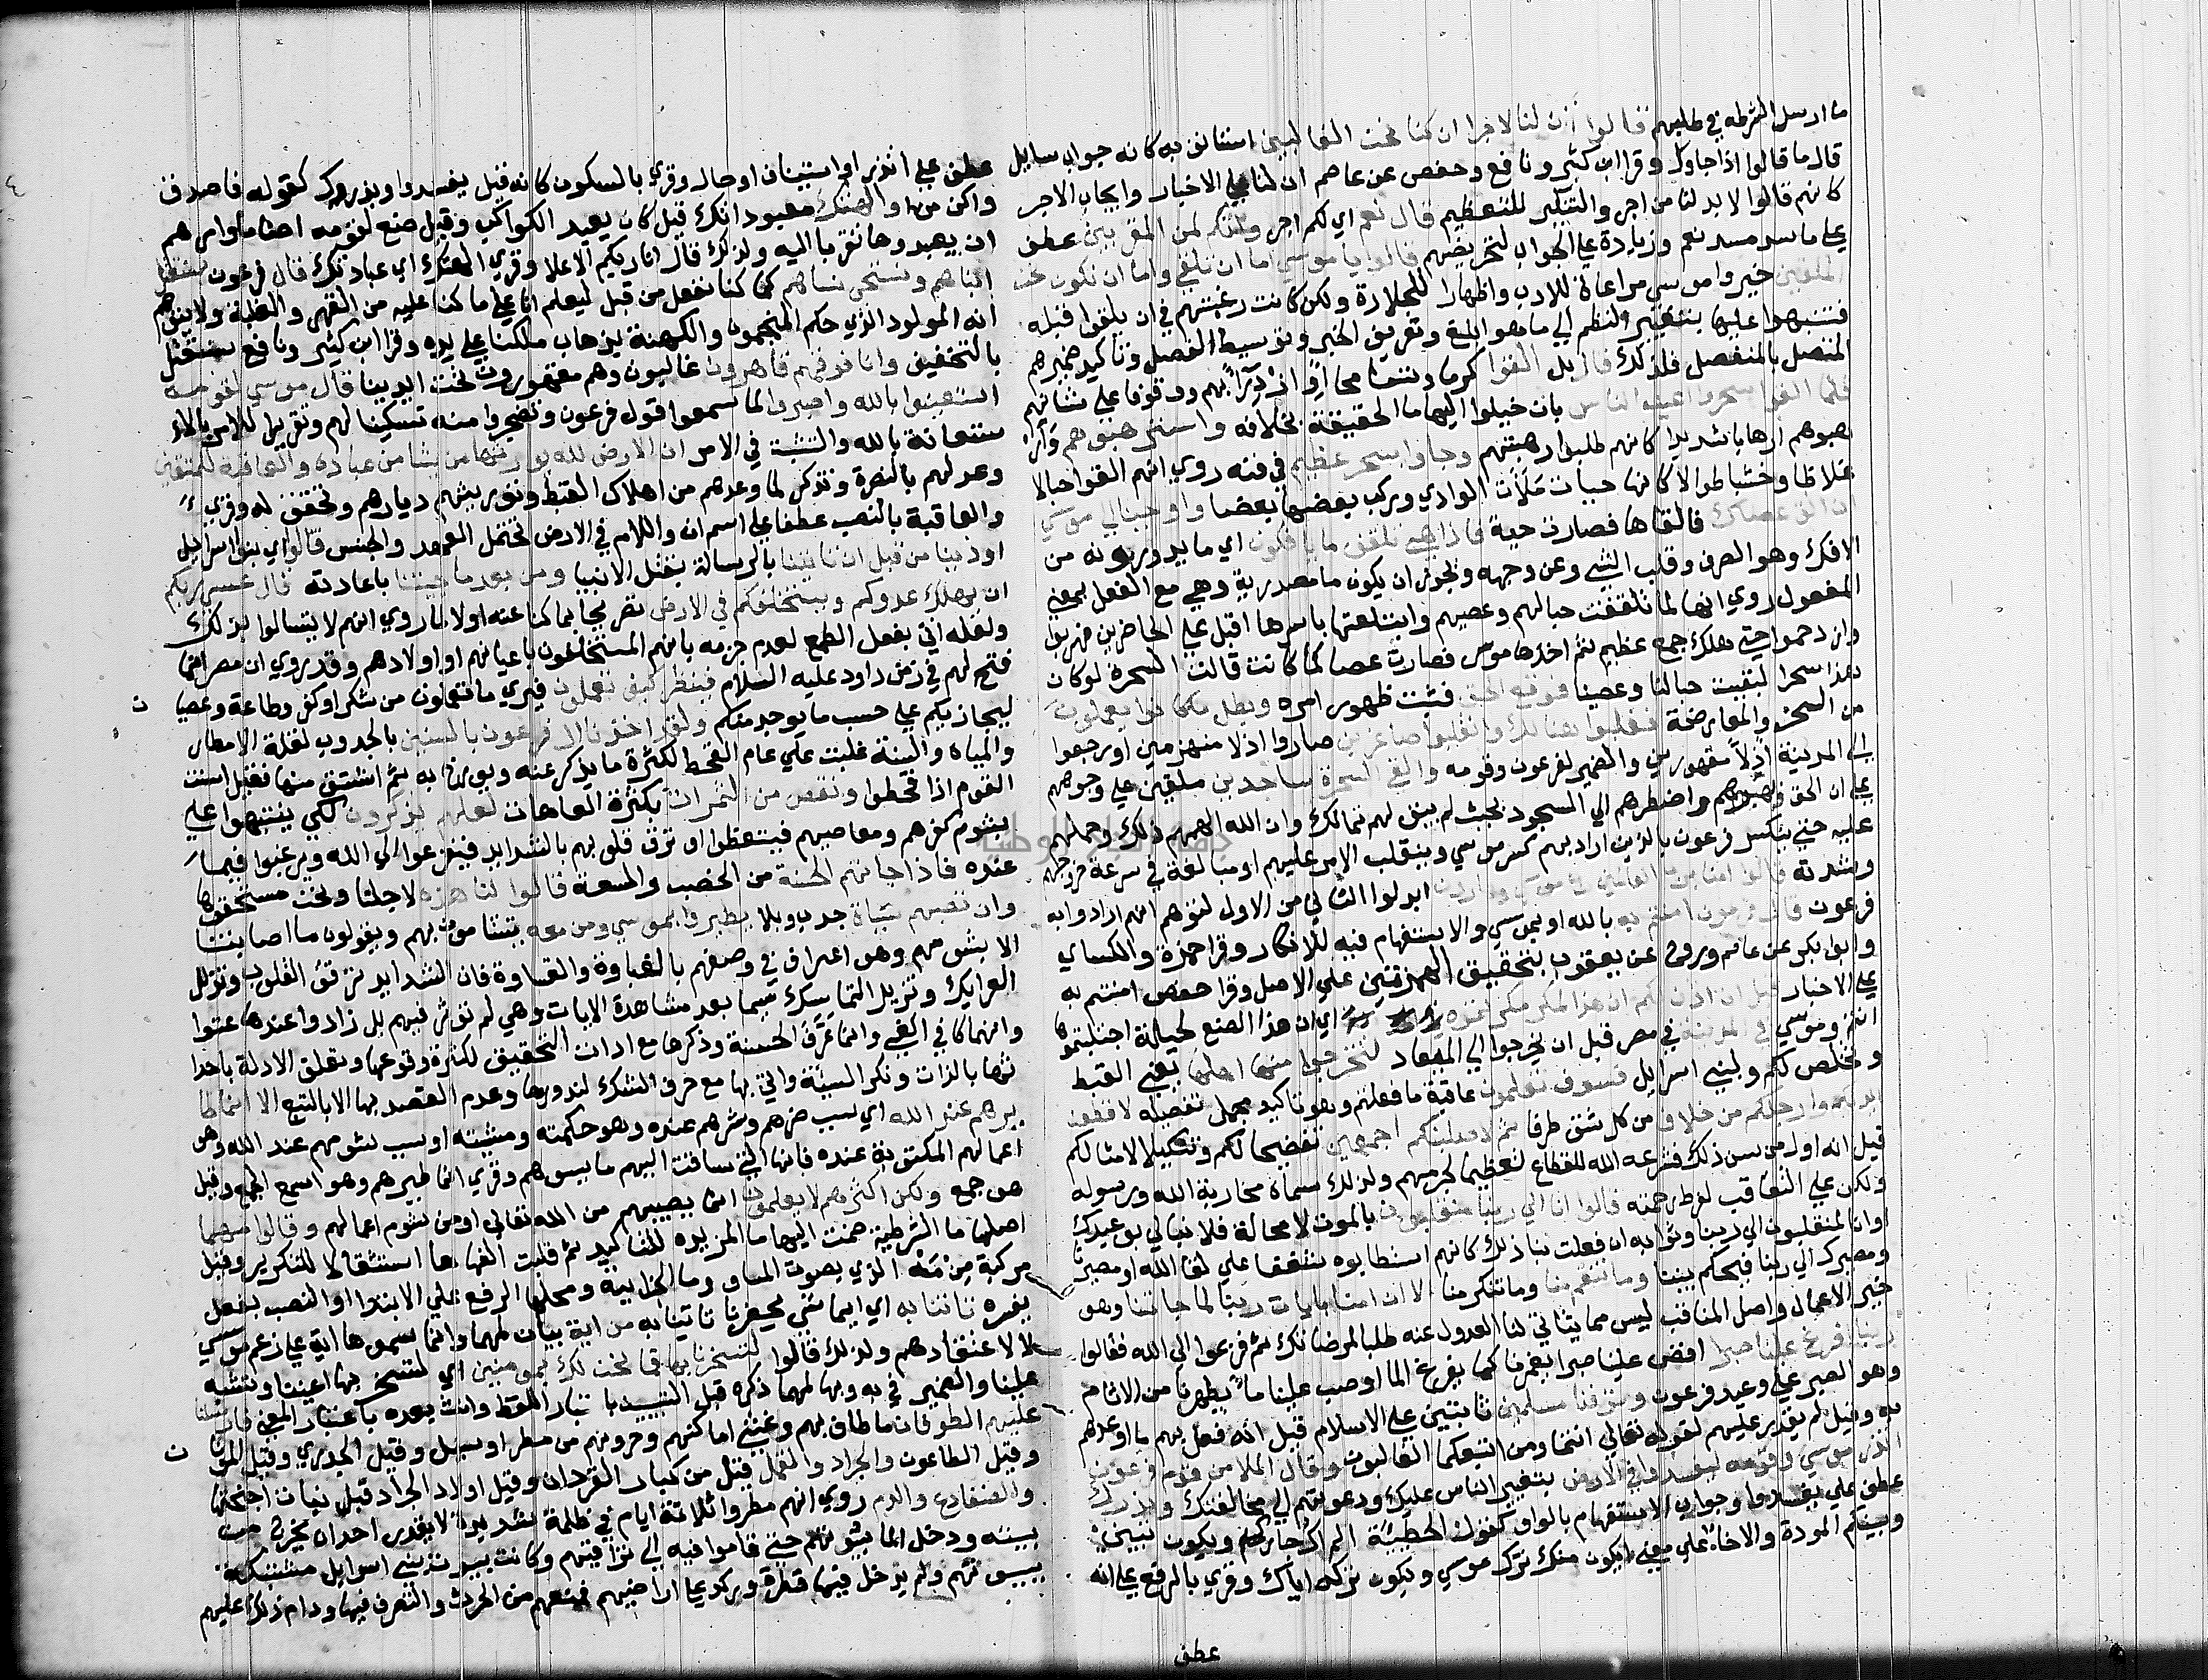 ما ارسل الشرطه في طلبهم قالوا أئن لنا لاجرا ان كنا نحن الغالبين استانف به كانه جواب سايل
قال ما قالوا اذا جاوك وقرا ابن كثير ونافع وحفص عن عاصم ان لنا علي الاخبار وايجاب الاجر
كانهم قالوا لا بد لنا من اجر والتنكير للتعظيم قال نعم اي لكم اجر وانكم لمن المقربين عطف
علي ما سد مسد نعم وزيادة علي الجواب لتحريضهم قالوا يا موسي اما ان تلقي واما ان نكون نحن
الملقين خيروا موسي مراعاة للادب واظهارا للجلادة ولكن كانت رغبتهم في ان يلقوا قبله
فنبهوا عليها بتغيير النظم الي ما هو ابلغ وتعريف الخبر وتوسيط الفصل وتاكيد ضميرهم
المتصل بالمنفصل فلذلك قال بل القوا كرما وتسامحا او ازدراً بهم ووثوقا علي شانهم
فلما القوا سحروا اعين الناس بان خيلوا اليها ما الحقيقة بخلافه واسترهبوهم وار
هبوهم ارهابا شديدا كانهم طلبوا رهبتهم وجاوا بسحر عظيم في فنه روي انهم القوا حبالا
غلاظا وخشبا طوالا كانها حيات ملات الوادي وركب بعضها بعضا واوحينا الي موسي
ان الق عصاك فالقاها فصارت حية فاذا هي تلقف ما يافكون اي ما يزورونه من
الافك وهو الصرف وقلب الشي وعن وجهه ويجوز ان يكون ما مصدرية وهي مع الفعل بمعني
المفعول روي انها لما تلقفت حبالهم وعصيهم وابتلعتها باسرها اقبل علي الحاضرين فهربوا
وازدحموا حتي هلك جمع عظيم ثم اخذها موسي فصارت عصا كما كانت قالت السحرة لو كان
هذا سحرا لبقيت حبالنا وعصينا فوقع الحق فثبت ظهور امره وبطل ما كانوا يعملون
من السحر والمعارضة فغلبوا هنالك وانقلبوا صاغرين صاروا اذلا منهزمين او رجعوا
الي المدينة اذلاً مقهورين والضمير لفرعون وقومه والقي السحرة ساجدين ملقين علي وجوههم
علي ان الحق بهرهم واضطرهم الي السجود بحيث لم يبق لهم تمالك وان الله الهمهم ذلك وحملهم
عليه حتي ينكسر فرعون بالذين اراد بهم كسر موسي وينقلب الامر عليهم او مبالغة في سرعة خرورهم
وشدته قالوا امنا برب العالمين رب موسي وهارون ابدلوا الثاني من الاول لتوهم انهم ارادوا به
فرعون قال فرعون امنتم به بالله او بموسي والاستفهام فيه للانكار وقرا حمزة والكساي
وابو بكر عن عاصم وروح عن يعقوب بتحقيق الهمزتين علي الاصل وقرا حفص امنتم به
علي الاخبار قبل ان اذن لكم ان هذا لمكر مكرتموه اي ان هذا الصنع لحيلة احتلتموها
انتم وموسي في المدينة في مصر قبل ان يخرجوا الي الميعاد لتخرجوا منها اهلها يعني القبط
وتخلص لكم ولبني اسرايل فسوف تعلمون عاقبة ما فعلتم وهو تاكيد مجمل تفصيله لاقطعن
ايديكم وارجلكم من خلاف من كل شق طرفا ثم لاصلبنكم اجمعين تفضيحا لكم وتنكيلا لامثالكم
قيل انه اول من سن ذلك فشرعه الله للقطاع تعظيما لجرمهم ولذلك سماه محاربة الله ورسوله
ولكن علي التعاقب لفرط رحمته قالوا انا الي ربنا منقلبون بالموت لا محالة فلا نبالي بوعيدك
او انا لمنقلبون الي ربنا وثوابه ان فعلت بنا ذلك كانهم استطابوه شغفا علي لقا الله او مصيرنا
ومصيرك الي ربنا فيحكم بيننا وما تنقم منا وما تنكر منا الا ان امنا بايات ربنا لما جاتنا وهو
خير الاعمال واصل المناقب ليس مما يتاتي لنا العدول عنه طلبا لمرضاتك ثم فزعوا الي الله فقالوا
ربنا افرغ علينا صبرا افض علينا صبرا يغمرنا كما يفرغ الما او صب علينا ماً يطهرنا من الاثام
وهو الصبر علي وعيد فرعون وتوفنا مسلمين ثابتين علي الاسلام قيل انه فعل بهم ما اوعدهم
به وقيل لم يقدر عليهم لقوله تعالي انتما ومن اتبعكما الغالبون وقال الملا من قوم فرعون
اتذر موسي وقومه ليفسدوا في الارض بتغيير الناس عليك ودعوتهم الي مخالفتك ويذرك
عطف علي يفسدوا وجواب الاستفهام بالواو كقول الحطيئة الم اك جاركم ويكون بيني
وبينكم المودة والاخاء علي معني ايكون منك ترك موسي ويكون تركه اياك وقري بالرفع علي انه
عطف
عطف علي اتذر او استيناف او حال وقري بالسكون كانه قيل يفسدوا ويذرك كقوله فاصدق
واكن من الهتك معبوداتك قيل كان يعبد الكواكب وقيل صنع لقومه اصناما وامرهم
ان يعبدوها تقربا اليه ولذلك قال انا ربكم الاعلا وقري الهتك اي عبادتك قال فرعون سنقتل
ابناهم ونستحي نساهم كما كنا نفعل من قبل ليعلم انا علي ما كنا عليه من القهر والغلبة ولا يتوهم
انه المولود الذي حكم المنجمون والكهنة بذهاب ملكنا علي يده وقرا ابن كثير ونافع سنقتل
بالتخفيف وانا فوقهم قاهرون غالبون وهم مقهورون تحت ايدينا قال موسي لقومه
استعينوا بالله واصبروا لما سمعوا قول فرعون وتضجروا منه تسكينا لهم وتقريرا للامر بالا
ستعانة بالله والتثبت في الامر ان الارض لله يورثها من يشا من عباده والعاقبة للمتقين
وعد لهم بالنصرة وتذكير لما وعدهم من اهلاك القبط وتوريثهم ديارهم وتحقيق له وقري
والعاقبة بالنصب عطفا علي اسم ان واللام في الارض تحتمل العهد والجنس قالوا اي بنوا اسرايل
اوذينا من قبل ان تاتينا بالرسالة بقتل الابنا ومن بعد ما جيتنا باعادته قال عسي ربكم
ان يهلك عدوكم ويستخلفكم في الارض تصريحا بما كنا عنه اولا لما روي انهم لا يتسالوا بذلك
ولعله اتي بفعل الطمع لعدم جزمه بانهم المستخلفون باعيانهم او اولادهم وقد روي ان مصر انما
فتح لهم في زمن داود عليه السلام فينظر كيف تعملون فيري ما تعملون من شكر او كفر وطاعة وعصيا
ن
ليجازيكم علي حسب ما يوجد منكم ولقد اخذنا ال فرعون بالسنين بالجدوب لقلة الامطار
والمياه والسنة غلبت علي عام القحط لكثرة ما يذكر عنه ويورخ به ثم اشتق منها فقيل اسنت
القوم اذا قحطوا ونقص من الثمرات بكثرة العاهات لعلهم يذكرون لكي ينتبهوا علي
شوم كفرهم ومعاصيهم فيتعظوا او ترق قلوبهم بالشدايد فيفزعوا الي الله ويرغبوا فيما
عنده فاذا جاتهم الحسنة من الخصب والسعة قالوا لنا هذه لاجلنا ونحن مستحقوها
وان تصبهم سيئة جدب وبلا يطيروا بموسي ومن معه يتشاموا بهم ويقولون ما اصابتنا
الا بشومهم وهو اغراق في وصفهم بالغباوة والقساوة فان الشدايد ترقق القلوب وتذلل
العرايك وتزيل التماسك سيما بعد مشاهدة الايات وهي لم تؤثر فيهم بل زادوا عندها عتوا
وانهماكا في الغي وانما عرف الحسنة وذكرها مع ادات التحقيق لكثرة وقوعها وتعلق الارادة باحدا
ثها بالذات ونكر السيئة واتي بها مع حرف الشك لندورها وعدم القصد بها الا بالتبع الا انما طا
يرهم عند الله اي سبب خيرهم وشرهم عنده وهو حكمته ومشيته او سبب شومهم عند الله وهو
اعمالهم المكتوبة عنده فانها التي ساقت اليهم ما يسوهم وقري انما طيرهم وهو اسم الجمع وقيل
هو جمع ولكن اكثرهم لا يعلمون انما يصيبهم من الله تعالي او من شوم اعمالهم وقالوا مهما
اصلها ما الشرطية ضمت اليها ما المزيده للتاكيد ثم قلبت الفها ها استثقالا للتكرير وقيل
مركبة من مه الذي يصوت الكاف وما الجزايية ومحلها الرفع علي الابتدا او النصب بفعل
يفسره تاتنا به اي ايما شي تحضرنا تاتينا به من اية بيان لمهما وانما سموها اية علي زعم موسي
لا لاعتقادهم ولذلك قالوا لتسحرنا بها فما نحن لك بمومنين اي لتسحر بها اعيننا وتشبه
علينا والضمير في به وبها لمهما ذكره قبل التبيين باعتبار اللفظ وانث بعده باعتبار المعني فارسلنا
عليهم الطوفان ما طاف بهم وغشي اماكنهم وحروثهم من مطر او سيل وقيل الجدري وقيل الموتا
ن
وقيل الطاعون والجراد والقمل قيل من كبار القردان وقيل اولاد الجراد قبل نبات اجنحتها
والضفادع والدم روي انهم مطروا ثلاثة ايام في ظلمة شديدة لا يقدر احد ان يخرج من
بيته ودخل الما بيوتهم حتي قاموا فيه الي تراقيهم وكانت بيوت بني اسرايل مشتبكة
ببيوتهم ولم يدخل فيها قطرة وركد علي اراضيهم فمنعهم من الحرث والتصرف فيها ودام ذلك عليهم